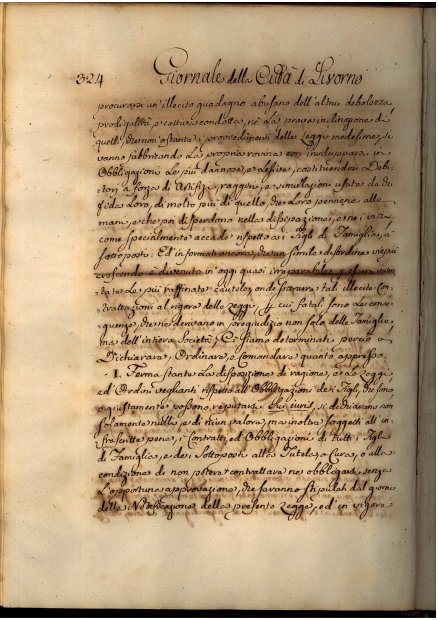 324 Giornale della Città di Livorno
procurarsi un'illecito guadagno abusano dell'altrui debolezza,
prodigalità, e cattiva condotta, nè la prava inclinazione di
quelli, che non ostante i provvedimenti delle Leggi medesime, si
vanno fabbricando la propria rovina con invilupparsi in
Obbligazioni le più dannose, e lesive, costituendosi Debi-
tori a forza di Artifizi, raggiri, e simulazioni usate da chi
fida loro, di molto più di quello, che loro perviene alle
mani, e che poi disperdono nella dissipazione, e ne i vizi
come specialmente accade rispetto a i Figli di Famiglia, o
sottoposti. Ed informati ancora, che un simile disordine vie più
crescendo è divenuto in oggi quasi irreparabile,
le più raffinate cautele, onde tali illecite con-
trattazioni al rigore delle Leggi, cui fatali sono le conse-
guenze, che ne derivano in pregiudizio non solo delle Famiglie,
ma dell'intiera Società, Ci siamo determinati perciò a
Dichiarare, Ordinare, e comandare quanto appresso.
I. Ferma stante la disposizione di ragione, e de Leggi
ed Ordini veglianti rispetto all'Obbligazioni de i Figli, che sono
o giustamente possono reputarsi Sui iuris, si dichiarano non
solamente nulle, e di niun valore, ma inoltre soggetti all'in-
frascritte pene, i Contratti, ed Obbligazioni di tutti i Figli
di Famiglia, e de i Sottoposti alla Tutela, o Cura, o alla
condizione di non potere contrattare, ne obbligarsi senza
l'opportuna approvazione, che saranno stipulati dal giorno
della Notificazione della presente Legge, ed in vigore